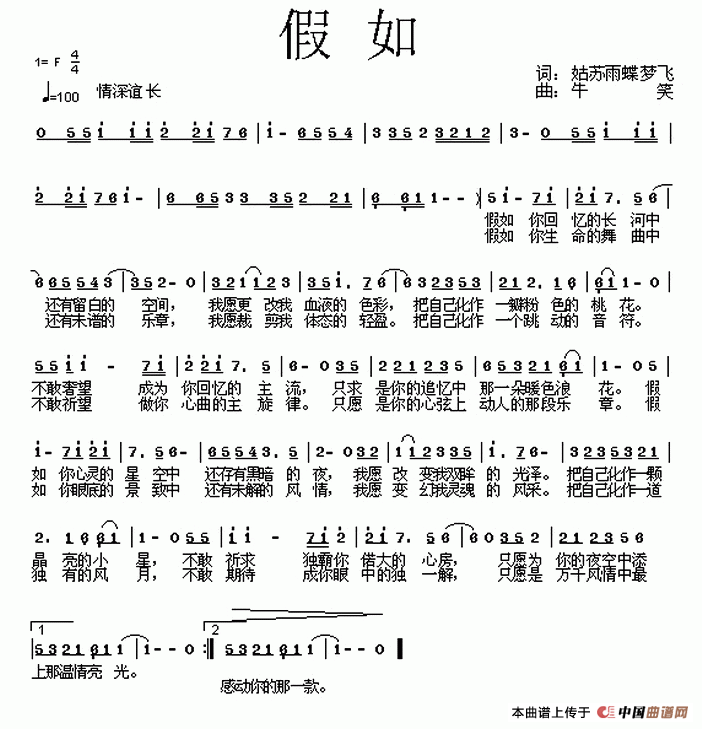 假如
1= F 4/4
词：姑苏雨蝶梦飞
♩=100 情深谊长
曲：牛 笑
0 5 5 i i i 2 2 i 7 6 | i - 6 5 5 5 4 | 3 3 5 2 3 2 1 2 | 3 - 0 5 5 i i i |
2 2 i 7 6 i - | 6 6 5 3 3 3 5 2 2 1 | 6 6 1 1 - - | 5 i - 7 i | 2 i 7. 5 6 |
假如 你回 忆的长 河中
假如 你生 命的舞 曲中
6 6 5 5 4 3 | 3 5 2 - 0 | 3 2 1 1 2 3 | 3 5 i. 7 6 | 6 2 3 5 3 5 | 2 1 2. 1 6 | 6 1 1 - 0 |
还有留白的 空间， 我愿更 改我 血液的 色彩， 把自己化作 一瓣粉 色的 桃花。
还有未谱的 乐章， 我愿裁 剪我 体态的 轻盈。 把自己化作 一个跳 动的 音符。
5 5 i i - 7 i | 2 i 2 i 7. 5 | 6 - 0 3 5 | 2 2 1 2 3 5 | 2 5 3 2 1 6 1 | 1 - 0 5 |
不敢奢望 成为 你回忆的 主流， 只求 是你的追忆中 那一朵暖色浪 花。 假
不敢祈望 做你 心曲的主 旋律。 只愿 是你的心弦上 动人的那段乐 章。 假
i - 7 i 2 i | 7. 5 6 - | 6 6 5 5 4 3 | 2 - 0 3 2 | 1 1 2 3 3 5 | i. 7 6 - | 3 2 3 5 3 2 1 |
如 你心灵的 星 空中 还存有黑暗 的 夜， 我愿 改 变我双眸 的 光泽。 把自己化作一颗
如 你眼底的 景 致中 还有未解的 风 情， 我愿 变 幻我灵魂 的 风采。 把自己化作一道
2. 1 6 6 1 | 1 - 0 5 5 | i i - 7 i 2 | 2 i 7. 5 | 6 6 0 3 5 2 | 2 1 2 3 5 6 |
晶 亮的小 星， 不敢 祈求 独霸你 偌大的 心房， 只愿为 你的夜空中添
独 有的风 月， 不敢 期待 成你眼 中的独 一解， 只愿是 万千风情中最
1 2
| 5 3 2 1 6 1 1 | 1 - - 0 :| 5 3 2 1 6 1 1 | 1 - - 0 ‖
上那温情亮 光。
感动你的那一款。
本曲谱上传于 中国曲谱网